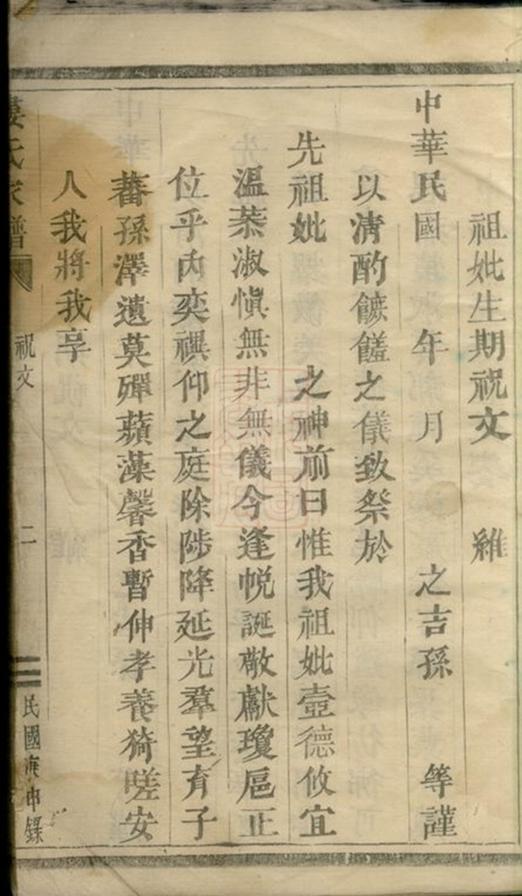 祖妣生期祝文 維
中華民國 年 月 之吉孫 等謹
以清酌之儀致祭於
先祖妣 之神前曰惟我祖妣壼德攸宜
溫恭淑慎無非無儀今逢帨誕敬獻瓊卮正
位乎內奕禩仰之庭除陟降延光羣望育子
蕃孫澤遺莫殫蘋藻馨香暫伸孝養猗嗟安
人我將我享
婁氏家譜 祝文 二 民國庚申鐫